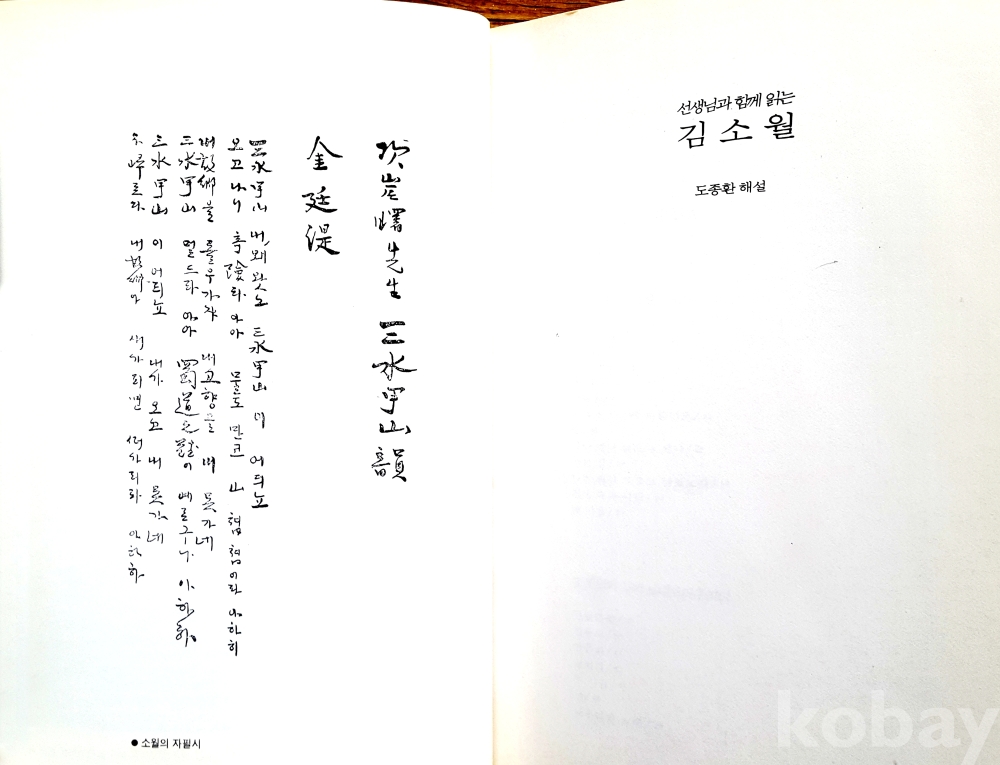 次岸曙先生 三水甲山韻
金廷湜
三水甲山 내 왜 왓노 三水甲山이 어듸뇨
오고나니 險타 아아 물도 만코 山 쳡쳡이라 아하하
내 故鄕을 돌우가쟈 내 고향을 내 못가네
三水甲山 멀드라 아아 蜀道之難이 예로구나 아하하
三水甲山이 어듸뇨 내가 오고 내 못가네
不歸로다 내 故鄕아 새가 되면 떠가리라 아하하
● 소월의 자필시
선생님과 함께 읽는
김소월
도종환 해설
kobay